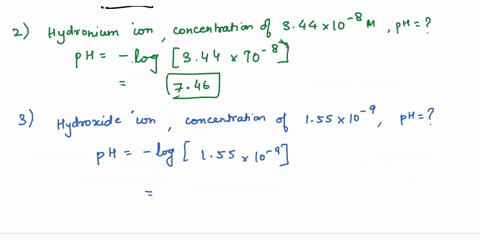 2) Hydronium ion, concentration of 3.44 x 10⁻⁸ M, pH = ?
pH = - log [3.44 x 10⁻⁸]
= 7.46
3) Hydroxide ion, concentration of 1.55 x 10⁻⁹, pH = ?
pH = - log [1.55 x 10⁻⁹]
=